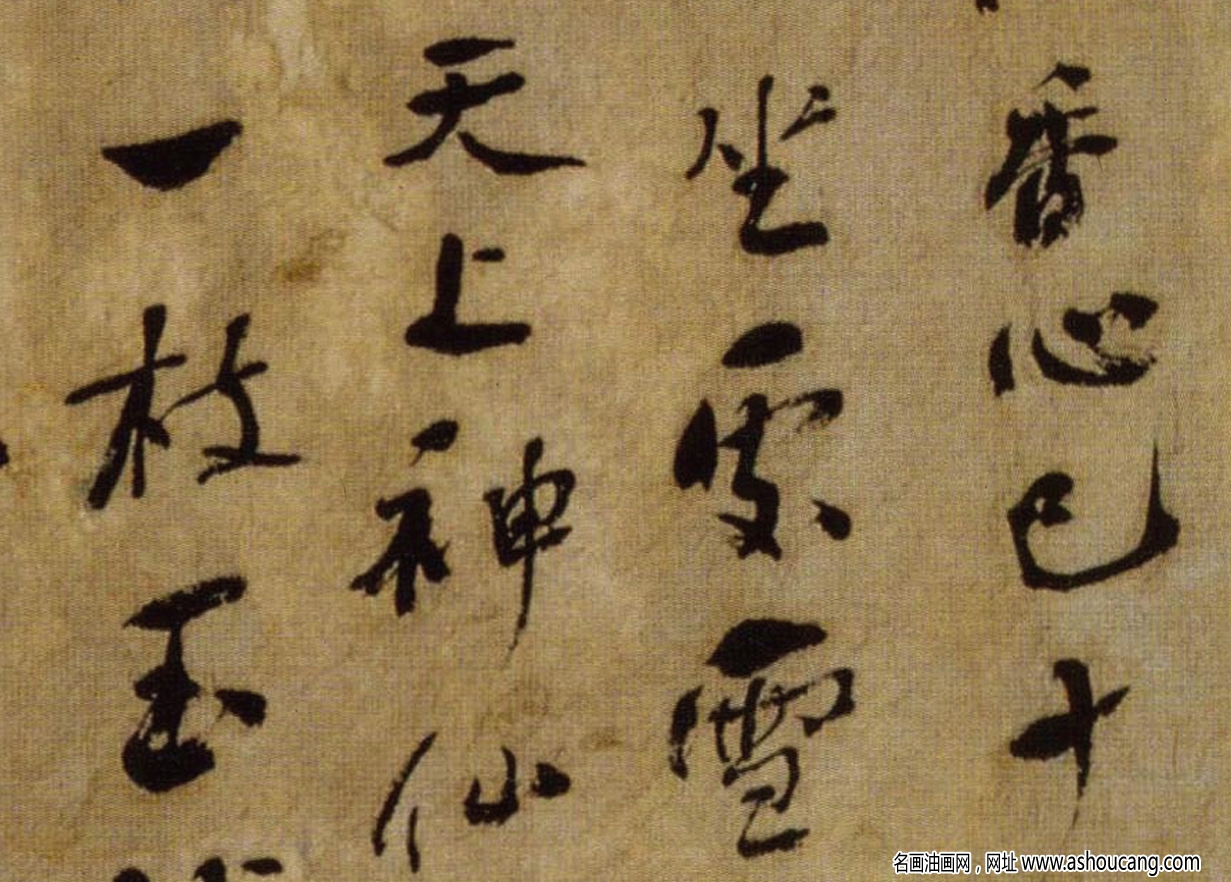 香心已十
坐雪
天上神仙
一枝玉
名画油画网，网址 www.ashoucang.com